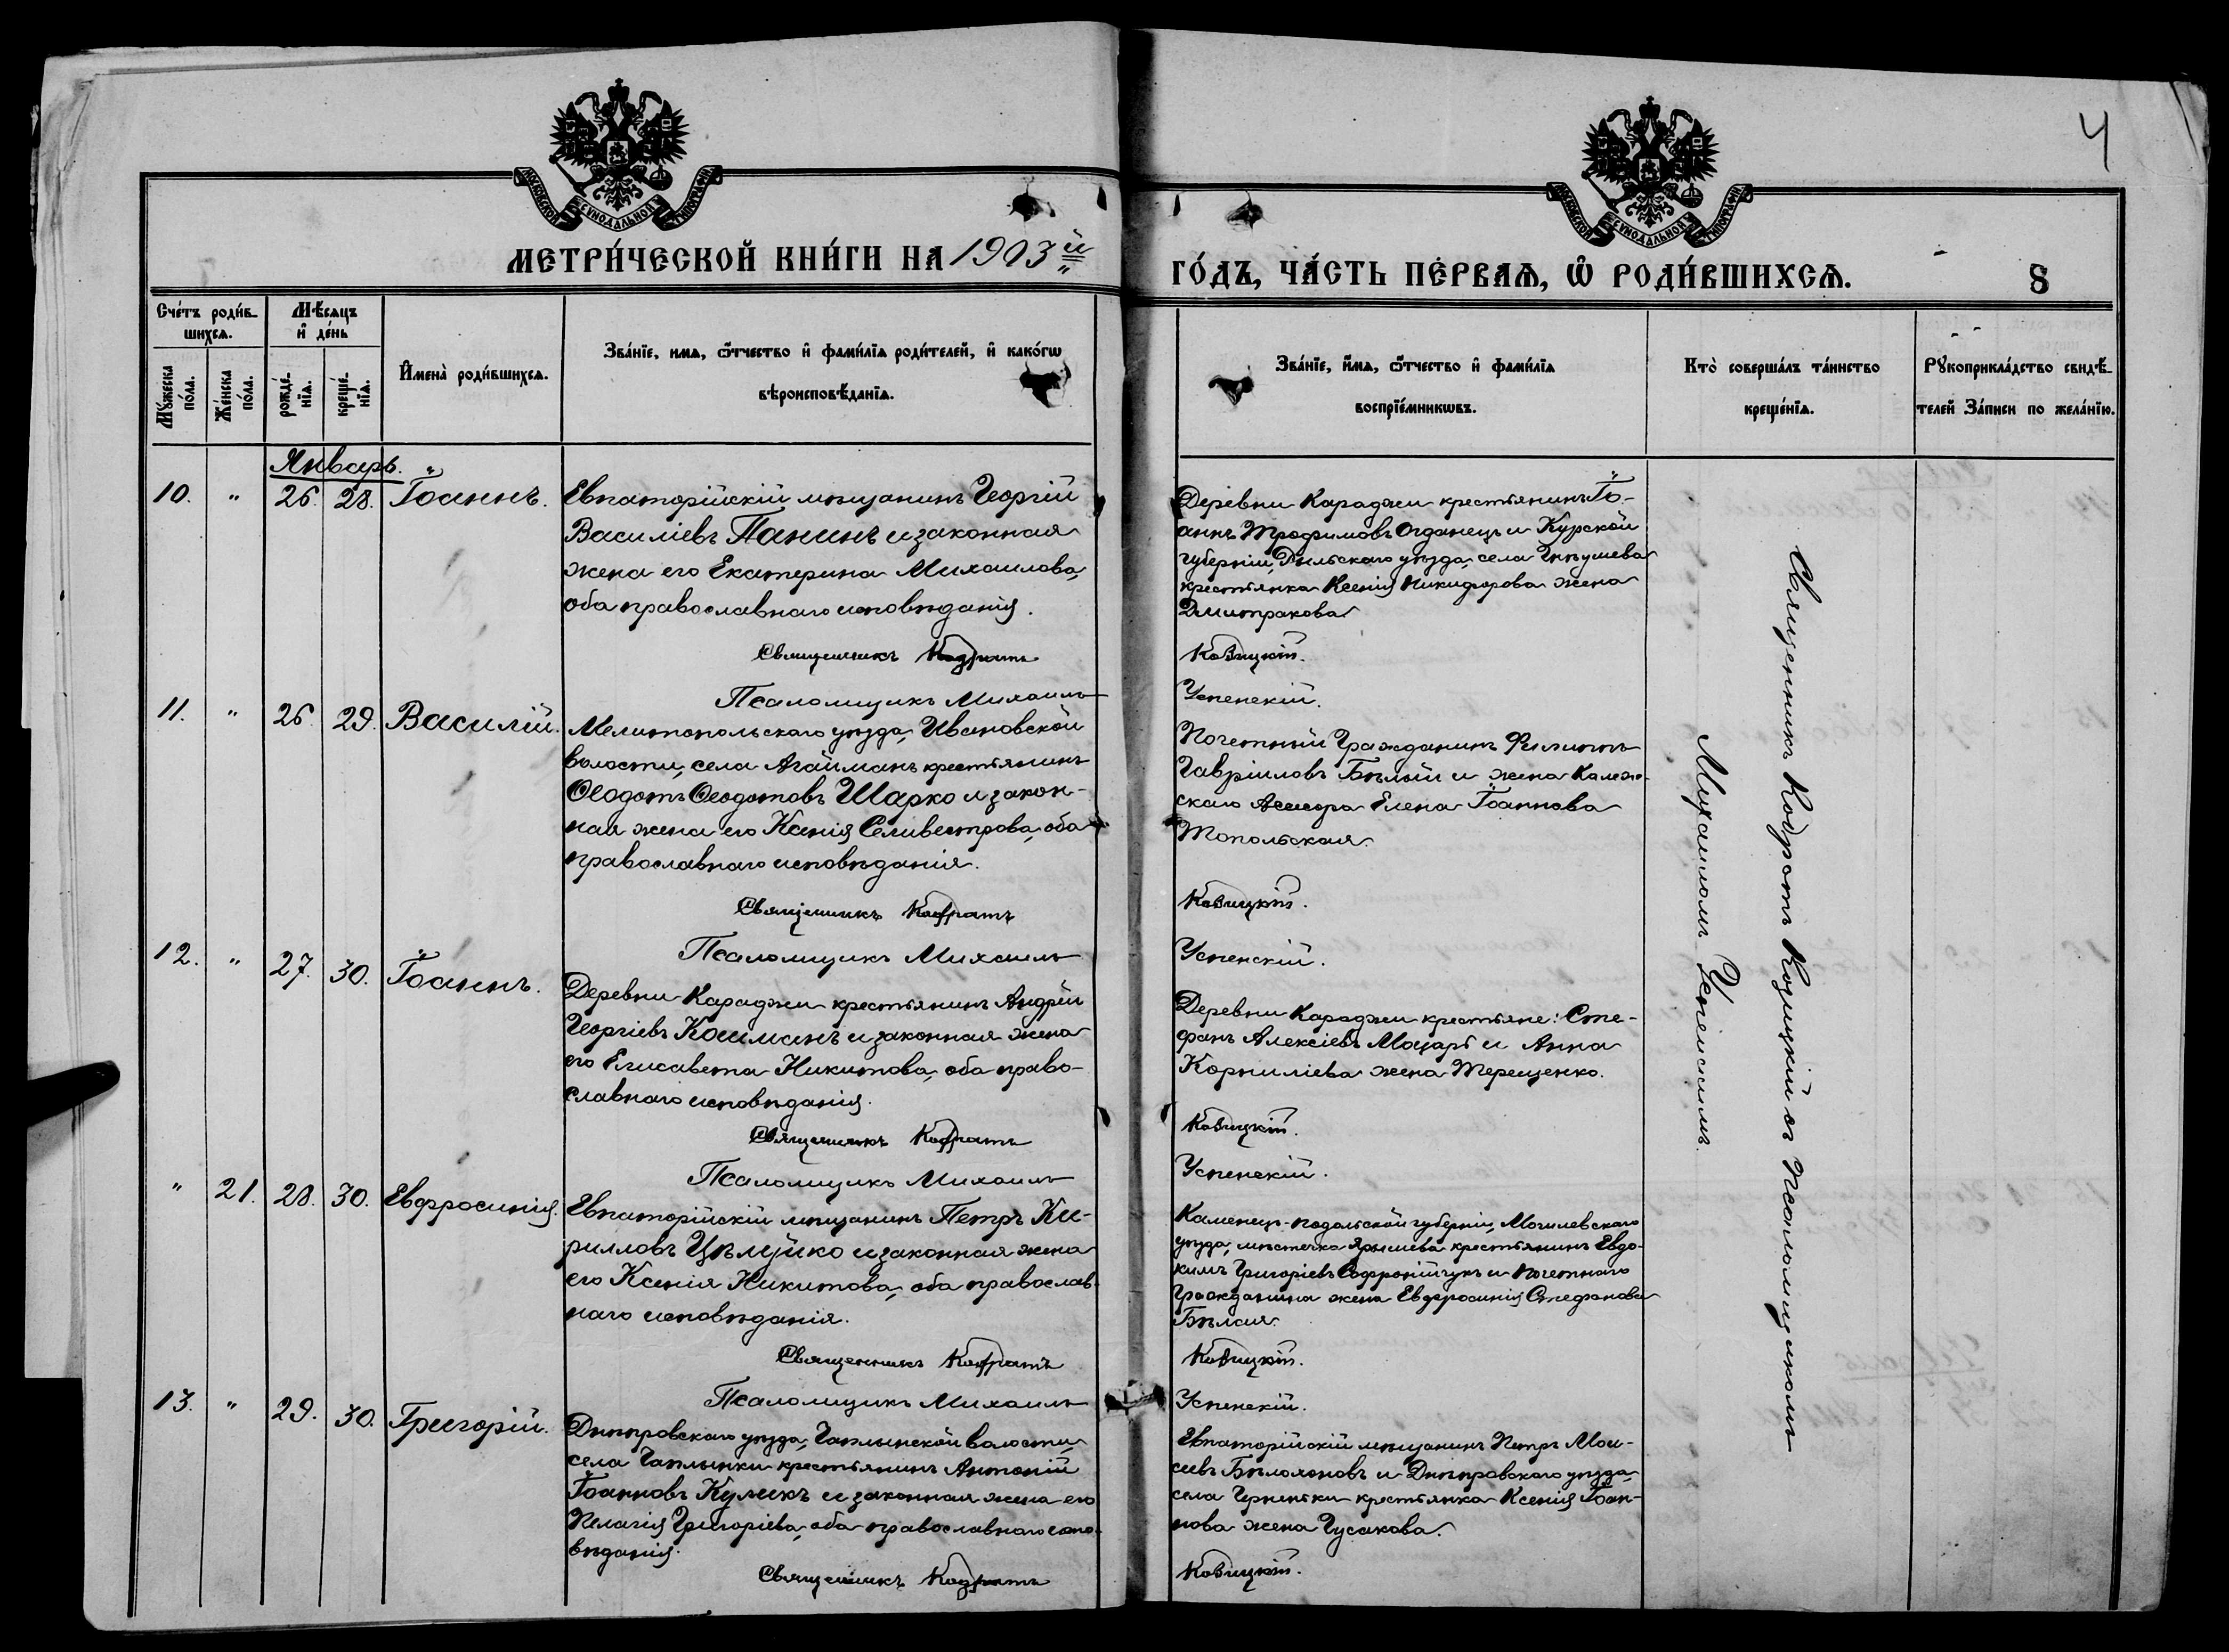 4
МОСКОВСКОЙ СѴНОДАЛЬНОЙ ТИПОГРАФІИ
МОСКОВСКОЙ СѴНОДАЛЬНОЙ ТИПОГРАФІИ
МЕТРИ́ЧЕСКОЙ КНИ́ГИ НА 1903й
ГО́ДЪ, ЧА́СТЬ ПЕ́РВАѦ, Ѡ҆ РОДИ́ВШИХСѦ. 8
Сче́тъ роди́в-
шихсѧ.
Мꙋ́жеска по́ла.
Же́нска по́ла.
Мѣ́сѧцъ
и҆ де́нь
рожде́-нїѧ.
креще́-нїѧ.
И҆мена̀ роди́вшихсѧ.
Зва́нїе, имѧ, ѻ҆́тчество и҆ фами́лїѧ роди́телей, и҆ како́гѡ
вѣроисповѣ́данїѧ.
Зва́нїе, и҆́мѧ, ѻ҆́тчество и҆ фами́лїѧ
воспрїе́мникѡвъ.
Кто̀ соверша́лъ та́инство
креще́нїѧ.
Рꙋкоприкла́дство свидѣ́-
телей За́писи по жела́нїю.
Январь.
10. " 26. 28. Іоаннъ.
Евпаторійскій мѣщанинъ Георгій
Василіевъ Панинъ и законная
жена его Екатерина Михаилова,
оба православнаго исповѣданія.
Священникъ Кодратъ
Псаломщикъ Михаилъ
Деревни Караджи крестьянинъ Іо-
аннъ Трофимовъ Огданецъ и Курской
губерніи, Рыльскаго уѣзда, села
крестьянка Ксенія Никифорова жена
Дмитракова
Козицкій.
Успенскій.
11. " 26. 29. Василій.
Мелитопольскаго уѣзда, Ивановской
волости, села Агайманъ крестьянинъ
Ѳеодотъ Ѳеодотовъ Шарко и закон-
ная жена его Ксенія Селивестрова, оба
православнаго исповѣданія.
Священникъ Кодратъ
Псаломщикъ Михаилъ
Почетный Гражданинъ Филиппъ
Гавріиловъ Бѣлый и жена Коллеж-
скаго Асессора Елена Іоаннова
Топольская.
Козицкій.
Успенскій.
12. " 27. 30. Іоаннъ.
Деревни Караджи крестьянинъ Андрей
Георгіевъ Кошманъ и законная жена
его Елисавета Никитова, оба право-
славнаго исповѣданія.
Священникъ Кодратъ
Псаломщикъ Михаилъ
Деревни Караджи крестьяне: Сте-
фанъ Алексіевъ Моцарь и Анна
Корниліева жена Терещенко.
Козицкій.
Успенскій.
" 21. 28. 30. Евфросинія.
Евпаторійскій мѣщанинъ Петръ Ки-
рилловъ Цѣлуйко и законная жена
его Ксенія Никитова, оба православ-
наго исповѣданія.
Священникъ Кодратъ
Псаломщикъ Михаилъ
Каменец-подольской губерніи, Могилевскаго
уѣзда, мѣстечка Ярышева крестьянинъ Евдо-
кимъ Григоріевъ Софронійчукъ и Почетнаго
Гражданина жена Евфросинія Стефанова
Бѣлая.
Козицкій.
Успенскій.
13. " 29. 30. Григорій.
Днѣпровскаго уѣзда, Чаплынской волости,
села Чаплынки крестьянинъ Антоній
Іоанновъ Куликъ и законная жена его
Пелагія Григоріева, оба православнаго испо-
вѣданія.
Священникъ Кодратъ
Евпаторійскій мѣщанинъ Петръ Мои-
сеевъ Бѣлоконовъ и Днѣпровскаго уѣзда,
села Черненьки крестьянка Ксенія Іоан-
нова жена Гусакова.
Козицкій.
Священникъ Кодратъ Козицкій съ псаломщикомъ
Михаиломъ Успенскимъ.